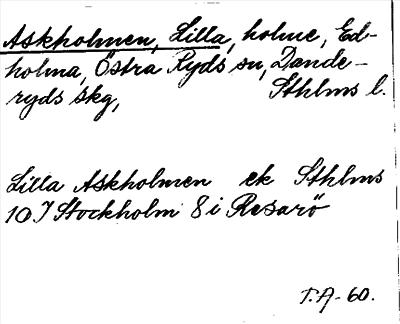 Askholmen, Lilla, holme, Ed-
holma, Östra Ryds sn, Dande-
ryds skg, Sthlms l.
Lilla Askholmen ek Sthlms
10 J Stockholm 8 i Resarö
T.A-60.